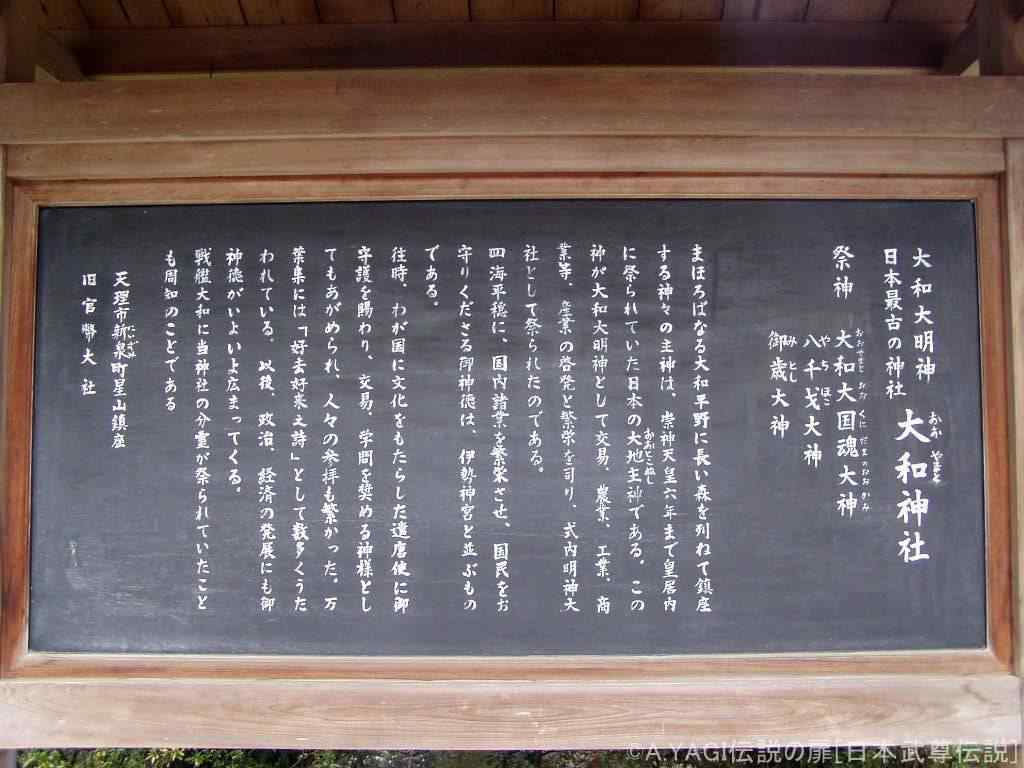 大和大明神
日本最古の神社 大和神社
おお やまと
祭神 大和大国魂大神
おおやまと おお くに だま の おお かみ
八千戈大神
や ち ほこ
御歳大神
み とし
まほろばなる大和平野に長い森を列ねて鎮座
する神々の主神は、崇神天皇六年まで皇居内
に祭られていた日本の大地主神である。この
おおとこぬし
神が大和大明神として交易、農業、工業、商
業等、産業の啓発と繁栄を司り、式内明神大
社として祭られたのである。
四海平穏に、国内諸業を繁栄させ、国民をお
守りくださる御神徳は、伊勢神宮と並ぶもの
である。
往時、わが国に文化をもたらした遣唐使に御
守護を賜わり、交易、学問を奨める神様とし
てもあがめられ、人々の参拝も繁かった。万
葉集には「好去好来之詩」として数多くうた
われている。以後、政治、経済の発展にも御
神徳がいよいよ広まってくる。
戦艦大和に当神社の分霊が祭られていたこと
も周知のことである
天理市新泉町星山鎮座
にいずみ
旧官幣大社
©A.YAGI伝説の扉[日本武尊伝説]